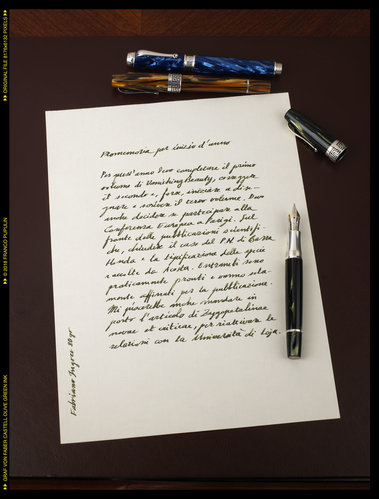 ORIGINAL FILE 8176x6132 PIXELS
© 2018 FRANCO PUPULIN
GRAF VON FABER-CASTELL OLIVE GREEN INK
Promemoria per inizio d'anno
Per quest'anno devo completare il primo
volume di Vanishing Beauty, correggere
il secondo e, forse, iniziare a dise-
gnare e scrivere il terzo volume. Devo
anche decidere se partecipare alla
Conferenza Europea a Parigi. Sul
fronte delle pubblicazioni scientifi-
che, chiudere il caso del P.N. di Barra
Honda e la tipificazione delle specie
raccolte da Acosta. Entrambi sono
praticamente pronti e vanno sola-
mente affinati per la pubblicazione.
Mi piacerebbe anche mandare in
porto l'articolo di Zygopetalinae
nuove et criticae, per riattivare le
relazioni con la Università di Loja.
Fabriano Ingres 90 gr